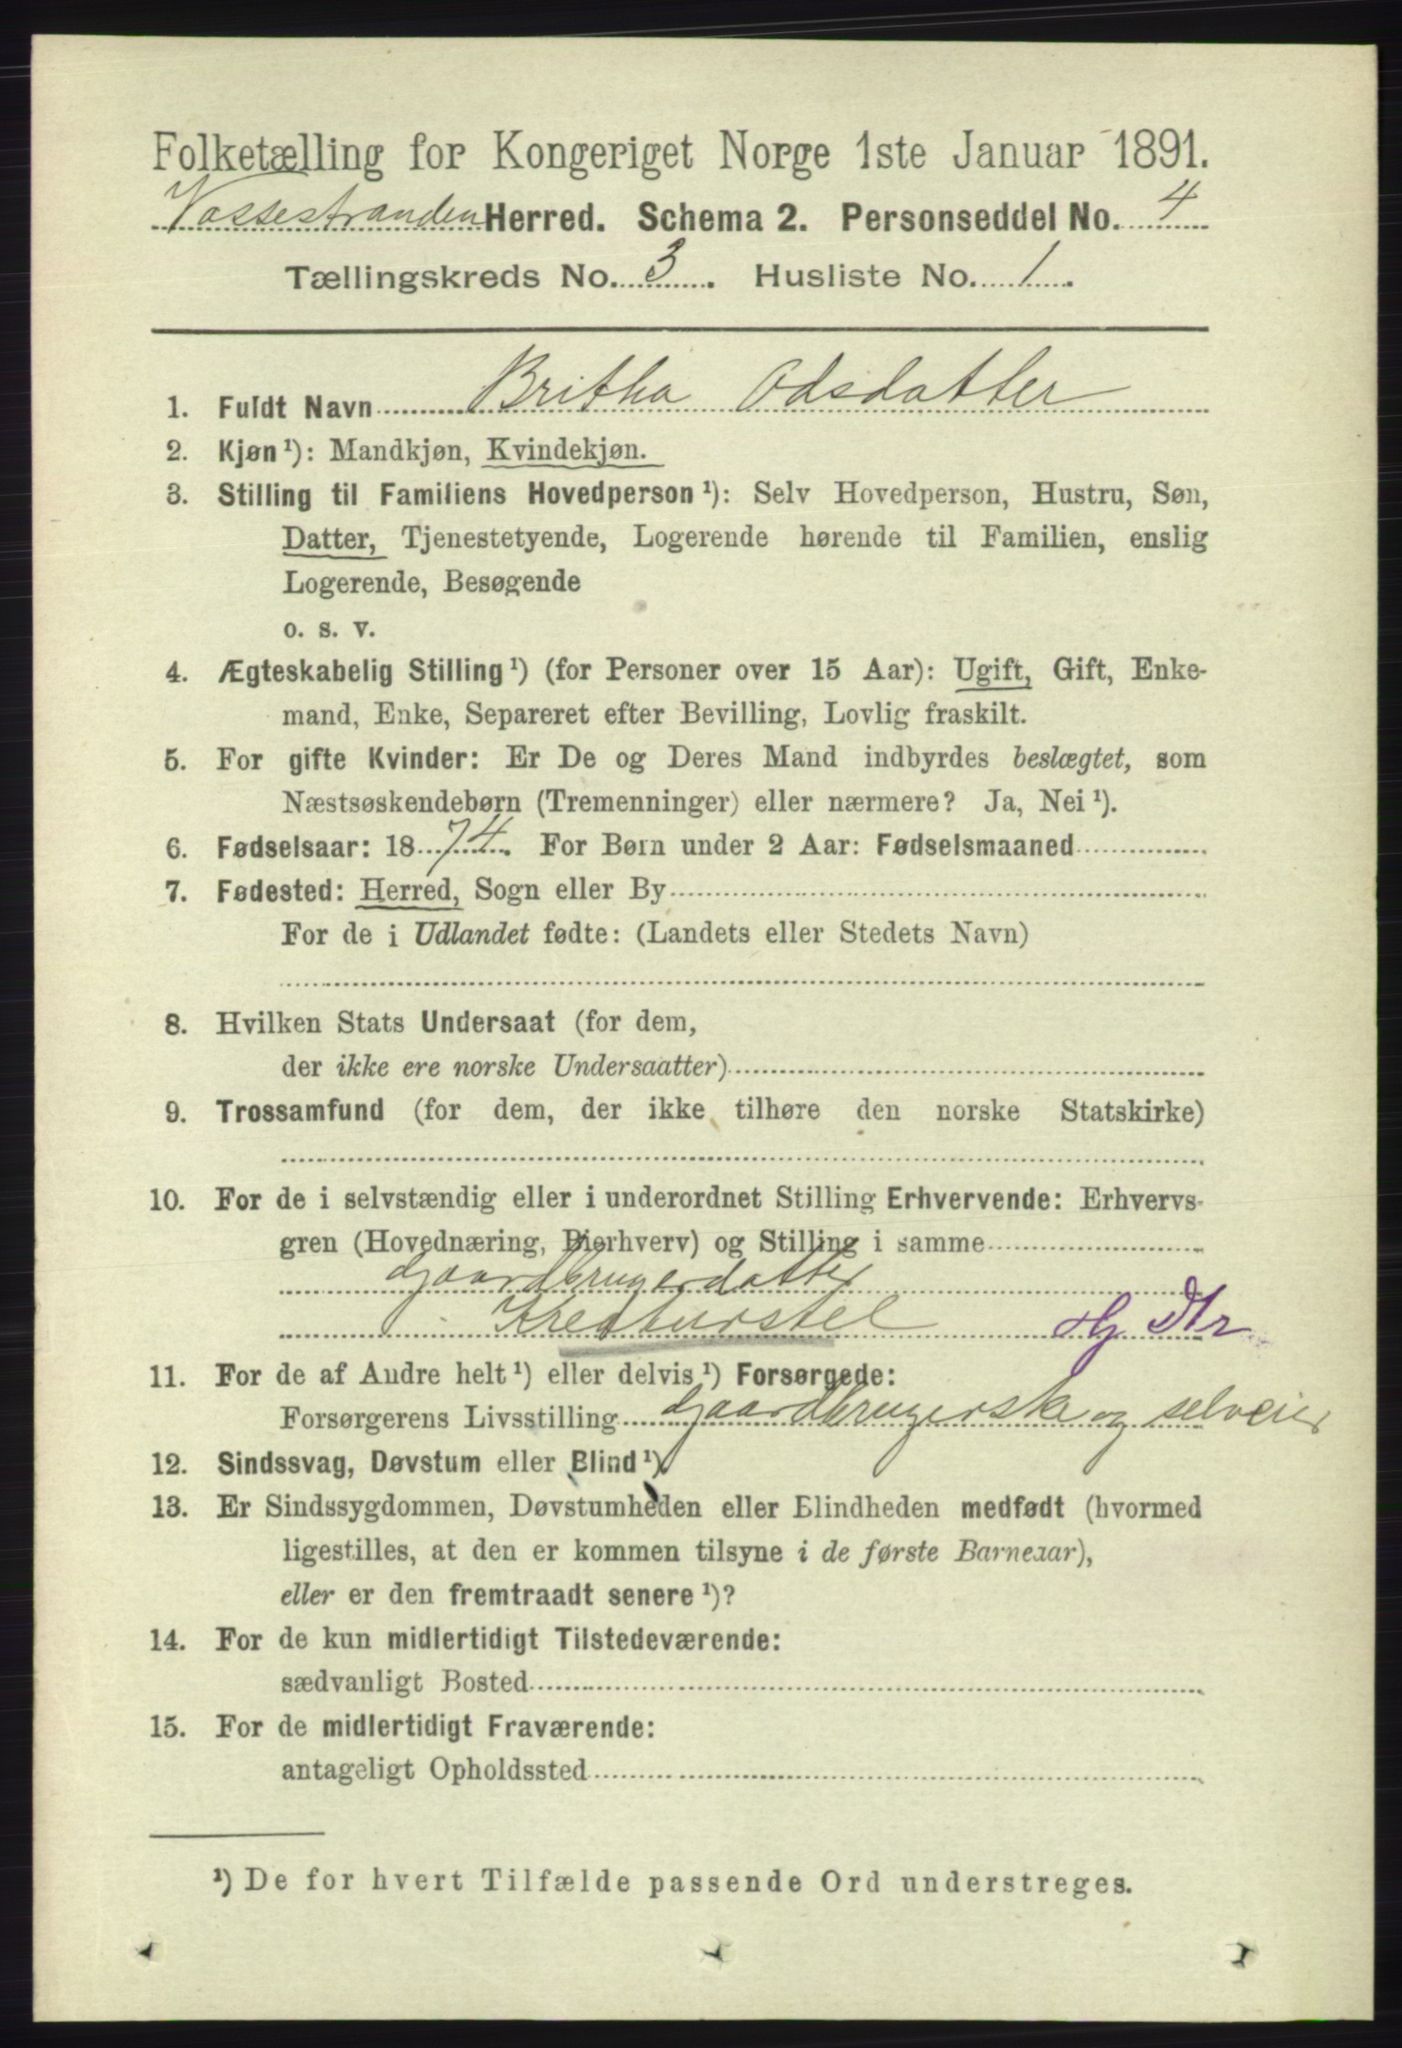 Folketælling for Kongeriget Norge 1ste Januar 1891.
Vossestranden Herred. Schema 2. Personseddel No. 4
Tællingskreds No. 3. Husliste No. 1.
1. Fuldt Navn Britha Odsdatter
2. Kjøn¹): Mandkjøn, Kvindekjøn.
3. Stilling til Familiens Hovedperson¹): Selv Hovedperson, Hustru, Søn,
Datter, Tjenestetyende, Logerende hørende til Familien, enslig
Logerende, Besøgende
o. s. v.
4. Ægteskabelig Stilling¹) (for Personer over 15 Aar): Ugift, Gift, Enke-
mand, Enke, Separeret efter Bevilling, Lovlig fraskilt.
5. For gifte Kvinder: Er De og Deres Mand indbyrdes beslægtet, som
Næstsøskendebørn (Tremenninger) eller nærmere? Ja, Nei¹).
6. Fødselsaar: 1874. For Børn under 2 Aar: Fødselsmaaned
7. Fødested: Herred, Sogn eller By
For de i Udlandet fødte: (Landets eller Stedets Navn)
8. Hvilken Stats Undersaat (for dem,
der ikke ere norske Undersaatter)
9. Trossamfund (for dem, der ikke tilhøre den norske Statskirke)
10. For de i selvstændig eller i underordnet Stilling Erhvervende: Erhvervs-
gren (Hovednæring, Bierhverv) og Stilling i samme
Gaardbrugerdatter
Kreaturstel Hj Dtr
11. For de af Andre helt¹) eller delvis¹) Forsørgede:
Forsørgerens Livsstilling Gaardbrugerske og selveier
12. Sindssvag, Døvstum eller Blind¹).
13. Er Sindssygdommen, Døvstumheden eller Blindheden medfødt (hvormed
ligestilles, at den er kommen tilsyne i de første Barneaar),
eller er den fremtraadt senere¹)?
14. For de kun midlertidigt Tilstedeværende:
sædvanligt Bosted
15. For de midlertidigt Fraværende:
antageligt Opholdssted
¹) De for hvert Tilfælde passende Ord understreges.